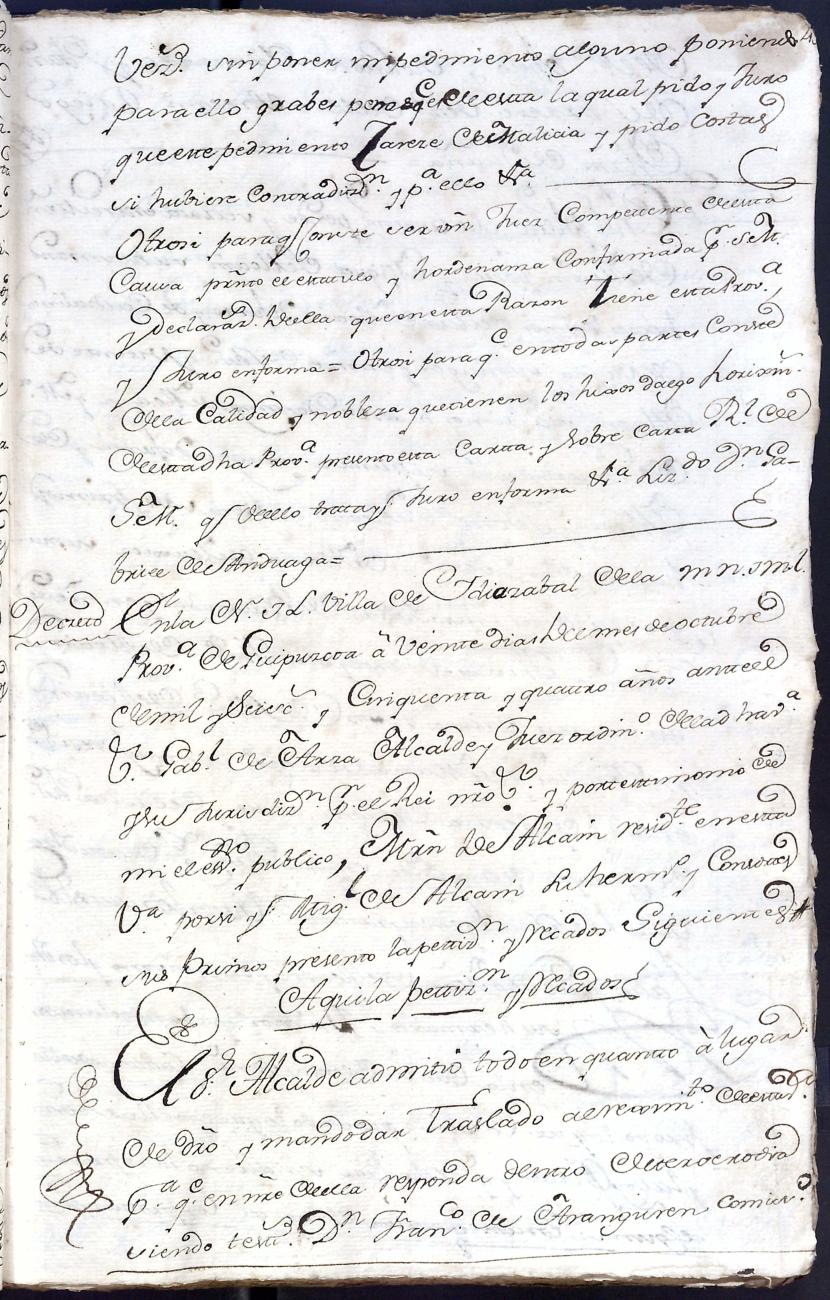 Verd. sin poner impedimiento alguno poniendo
para ello grabes penas q es de esta la qual pido y Juro
que este pedimiento Careze de Malicia y pido Costas
si hubiere Contradizn. y pa. ello &a
Otrosi para q Conste ser vm Juez Competente de esta
Causa pnto el estatuto y hordenanza Confirmada pr. S. M.
y Declarazd. de ella que en esta Razon Tiene esta Prova.,
y Juro en forma = Otrosi para qe en todas partes Conste
de la Calidad y nobleza que tienen los hixos dalgo horixin.
de esta dha Prova. presento esta Carta y sobre Carta Rl de
Sa M. q de ello trata y Juro en forma &a Lizdo Dn Ga-
briel de Anduaga =
Decreto En la N. I L. Villa de Idiazabal de la M N. I M L.
Prova de Guipuzcoa â Veinte dias de el mes de octubre
de mil y Setec. y Cinquenta y quatro años ante el
S. Gabl de Arza Alcalde y Juez ordino de la dha va
y su Jurisdizn pr. el Rei nro S. y por testimonio de
mi el essno. publico, Mrn de Alcain residte en esta
Va por si y Migl de Alcain su hermo y Consortes
sus Primos presento la pettizn y Recados Siguientes #
Aqui la pettizn y Recados
El Sr. Alcalde admitio todo en quanto â lugar
de dro y mando dar Traslado al sto de esta
pa. qe en nre de ella responda dentro de terzero dia
siendo testi. Dn Franco de Aranguren